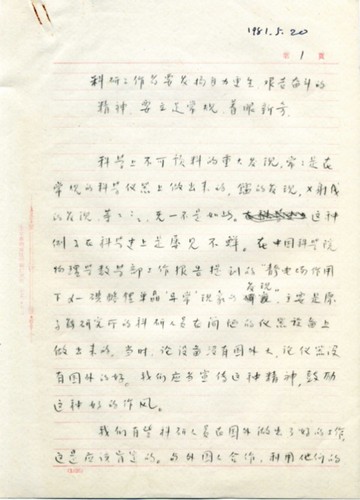 1981.5.20
第 1 页
科研工作者要发扬自力更生 艰苦奋斗的
精神，要立足常规，着眼新奇
科学上不可预料的重大发现，常常是在
常规的科学仪器上做出来的，镭的发现，X射线
的发现，等等，无一不是如此。这种
例子在科学史上是屡见不鲜。在中国科学院
物理学数学部工作报告提到的"静电场作用
下 碘酸锂单晶 现象的发现，主要是
研究所的科研人员在 他的仪器设备上
做出来的。当时，论设备没有国外大，论仪器没
有国外的好。我们应当宣传这种精神，鼓励
这种好的作风。
我们有些科研人员在国外做出了好的工作，
这是应该肯定的。与外国人合作，利用他们的